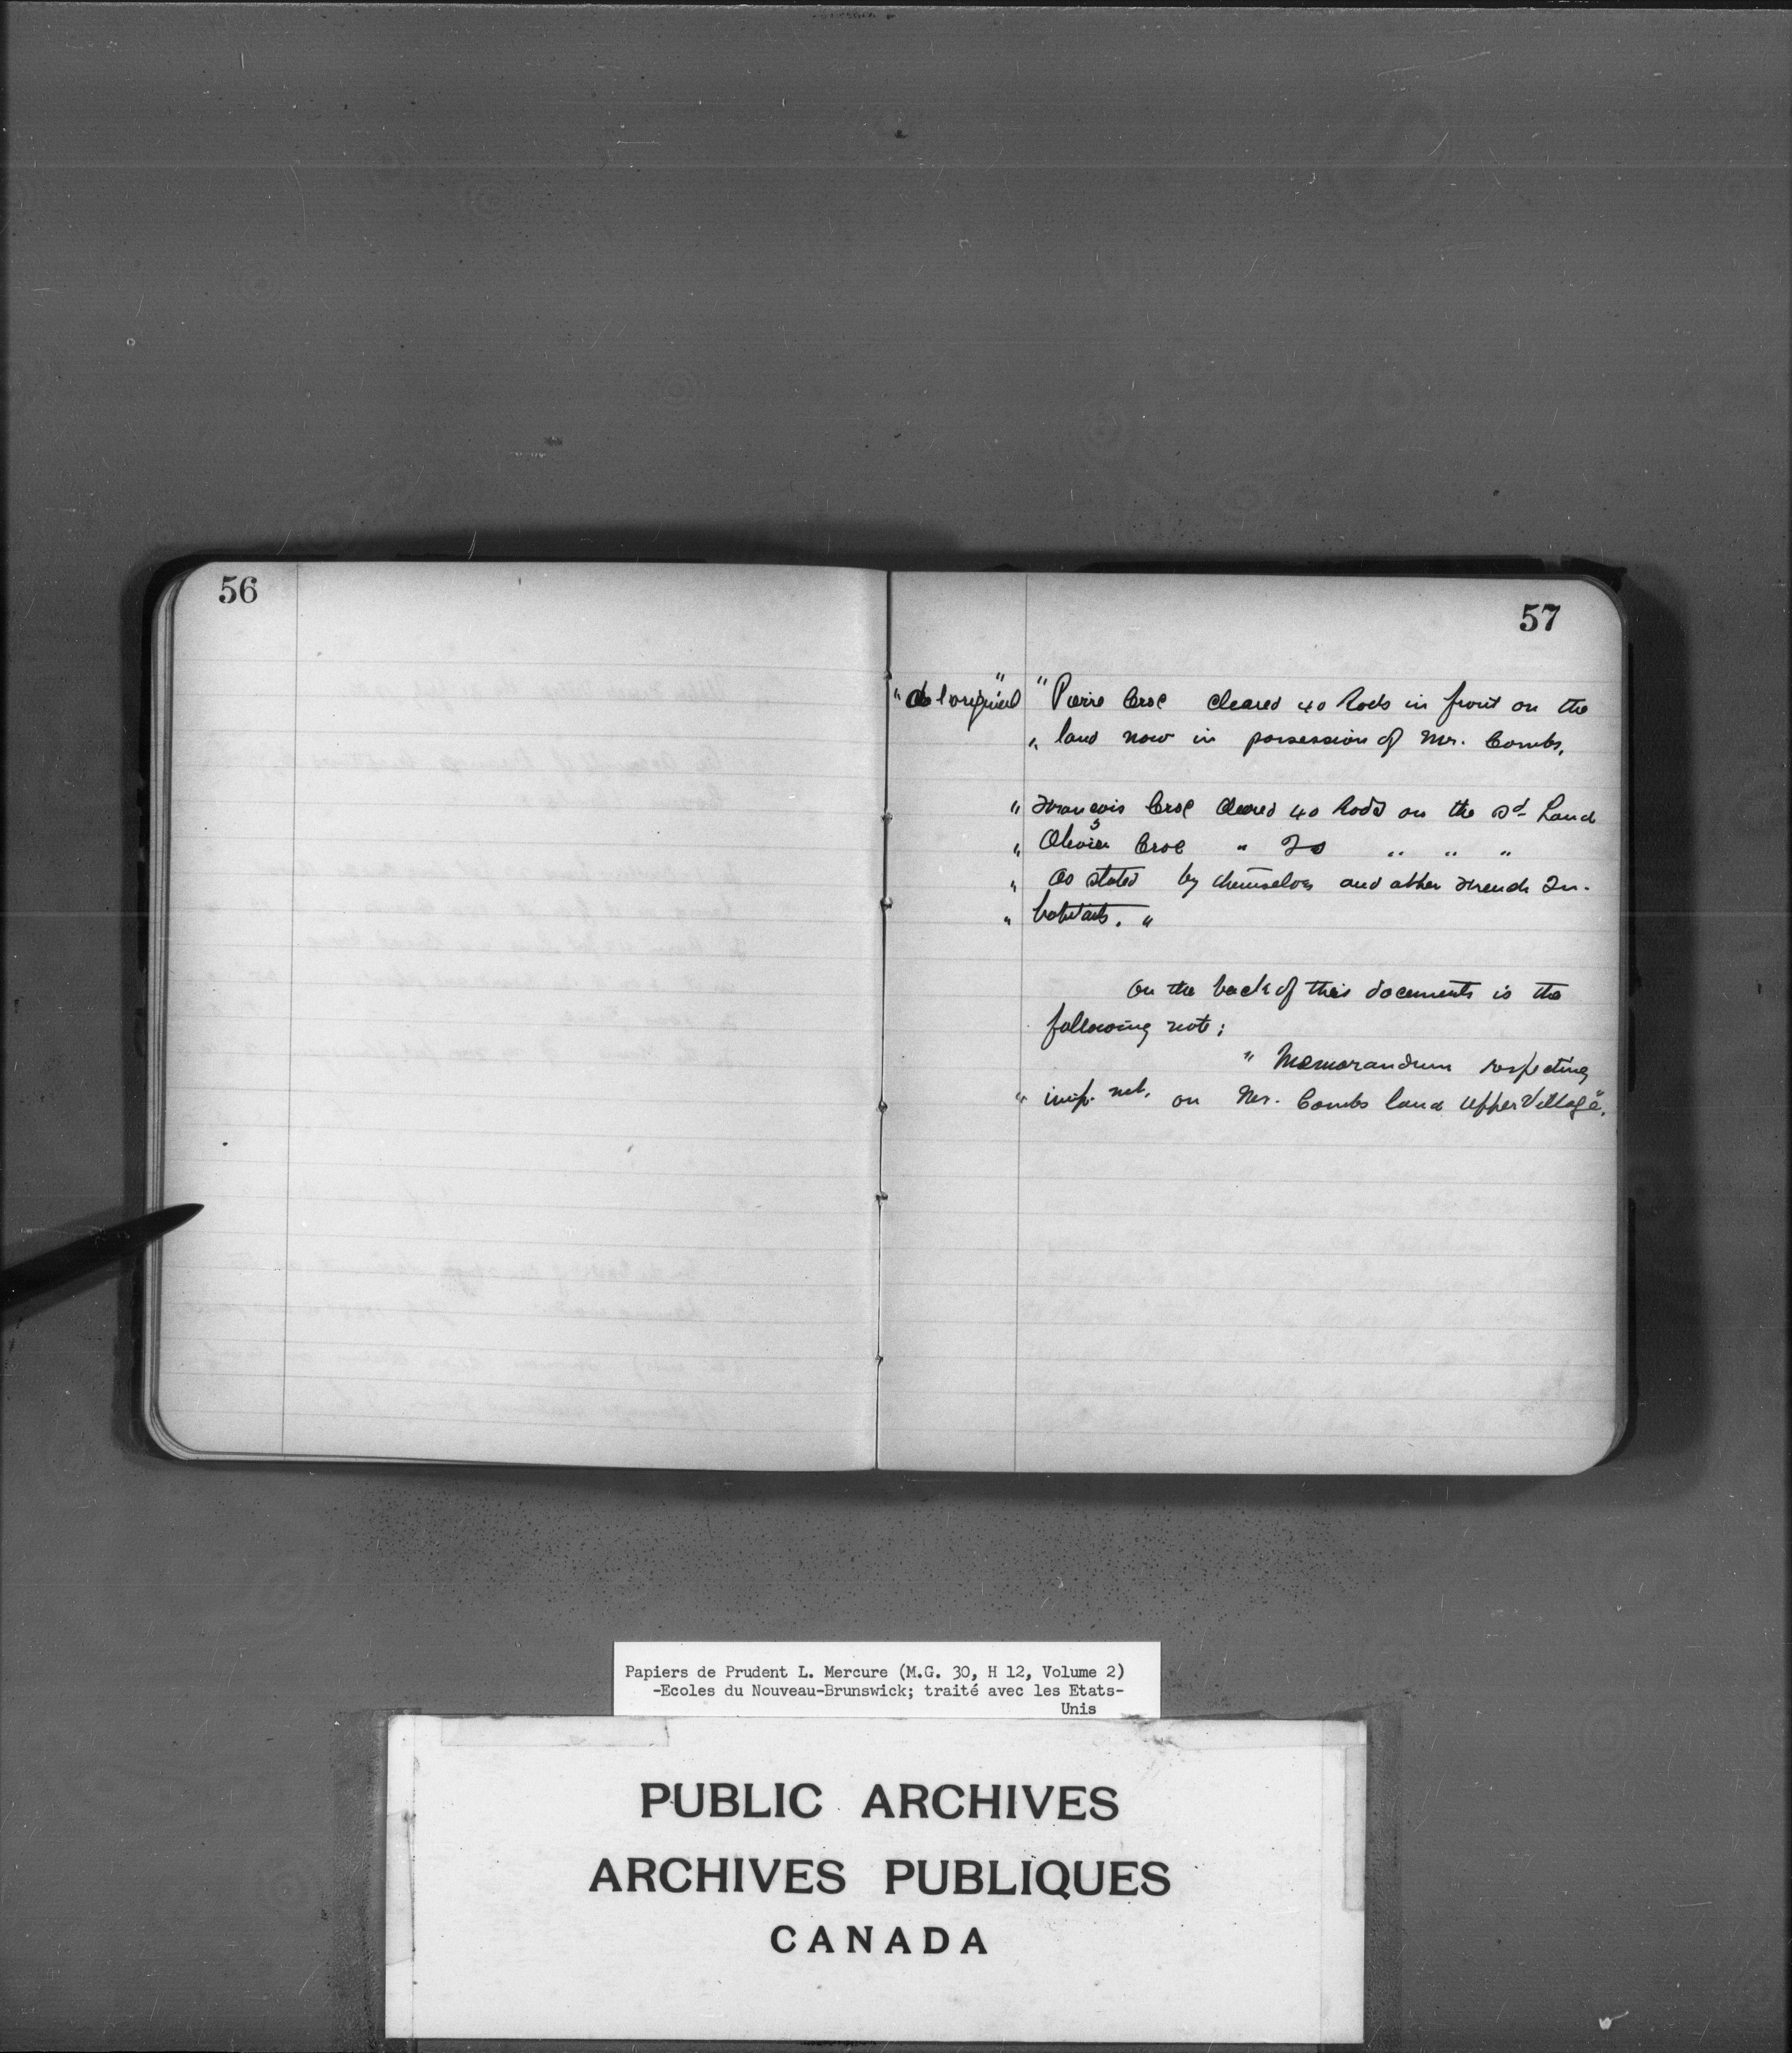 56
57
"de l'original" " Pierre Croc cleared 40 Rods in front on the
" land now in possession of Mr. Combs.
" François Croc cleared 40 Rods on the sd Land
" Olivier Croc " 20 " " "
" as stated by themselves and other French In-
" habitants. "
on the back of this documents is the
following note:
" Memorandum respecting
" imp. mt. on Mr. Combs land Upper Village".
Papiers de Prudent L. Mercure (M.G. 30, H 12, Volume 2)
-Ecoles du Nouveau-Brunswick; traité avec les Etats-
Unis
PUBLIC ARCHIVES
ARCHIVES PUBLIQUES
CANADA